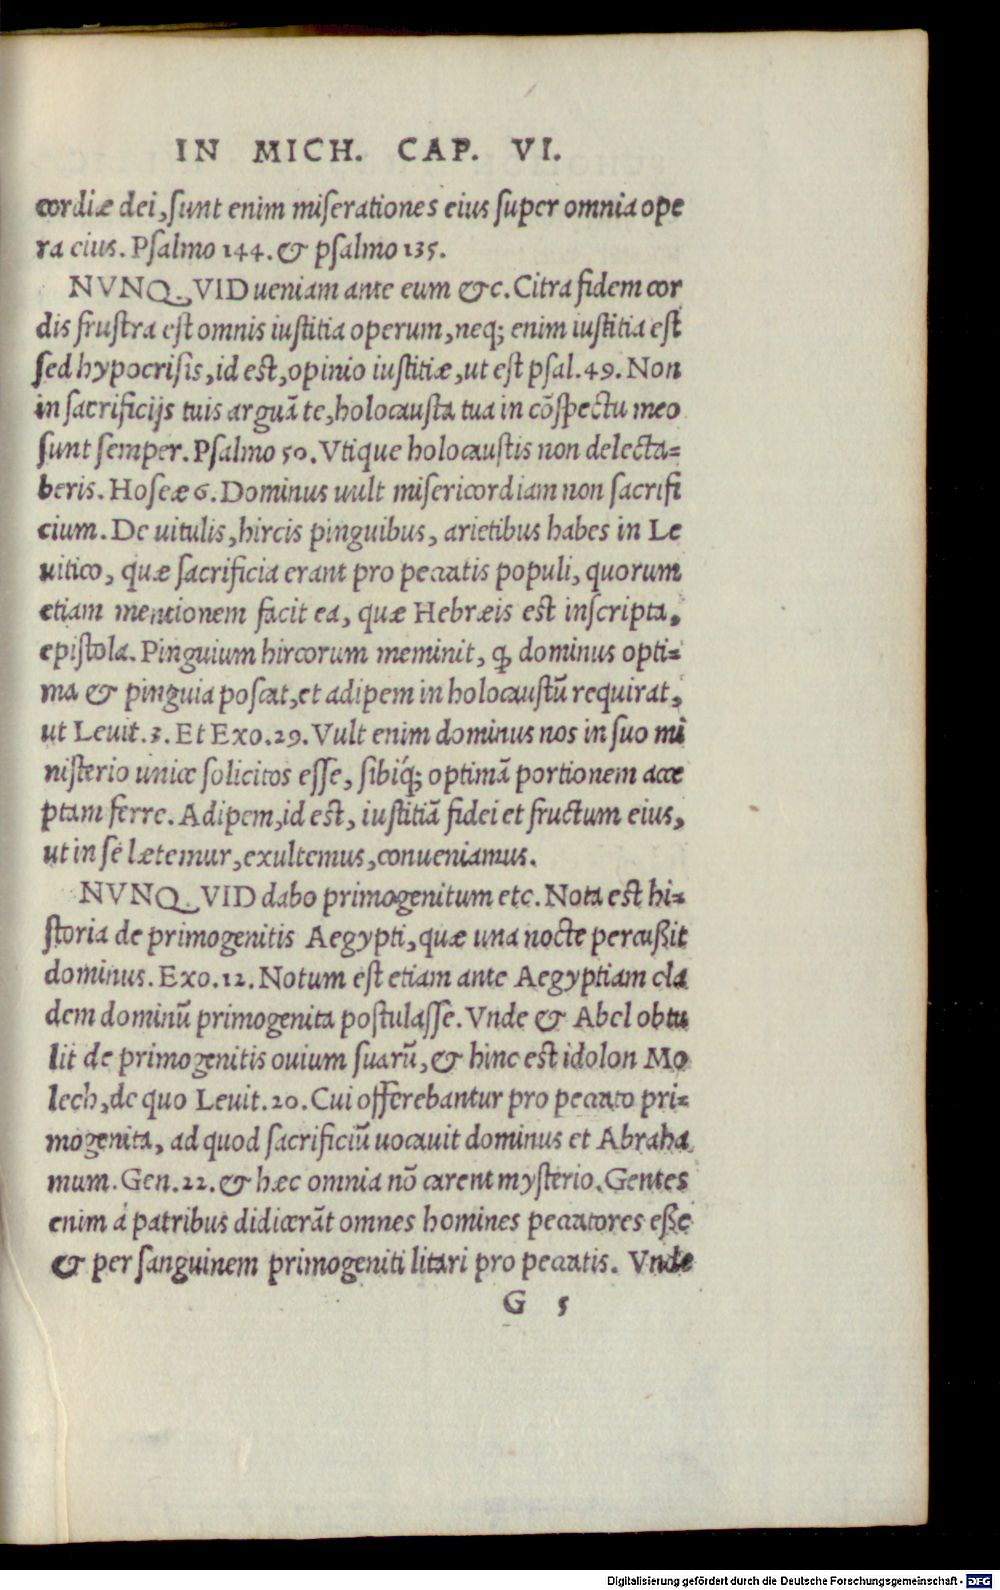 IN MICH. CAP. VI.
cordiæ dei, sunt enim miserationes eius super omnia ope
ra eius. Psalmo 144. & psalmo 135.
NVNQVID ueniam ante eum &c. Citra fidem cor
dis frustra est omnis iustitia operum, neq; enim iustitia est
sed hypocrisis, id est, opinio iustitiæ, ut est psal. 49. Non
in sacrificijs tuis arguā te, holocausta tua in cōspectu meo
sunt semper. Psalmo 50. Vtique holocaustis non delecta=
beris. Hoseæ 6. Dominus uult misericordiam non sacrifi
cium. De uitulis, hircis pinguibus, arietibus habes in Le
uitico, quæ sacrificia erant pro peccatis populi, quorum
etiam mentionem facit ea, quæ Hebræis est inscripta,
epistola. Pinguium hircorum meminit, ꝙ dominus opti=
ma & pinguia poscat, et adipem in holocaustū requirat,
ut Leuit. 3. Et Exo. 29. Vult enim dominus nos in suo mi
nisterio unice solicitos esse, sibiq́; optimā portionem acce
ptam ferre. Adipem, id est, iustitiā fidei et fructum eius,
ut in se lætemur, exultemus, conueniamus.
NVNQVID dabo primogenitum etc. Nota est hi=
storia de primogenitis Aegypti, quæ una nocte percußit
dominus. Exo. 12. Notum est etiam ante Aegyptiam cla
dem dominū primogenita postulasse. Vnde & Abel obtu
lit de primogenitis ouium suarū, & hinc est idolon Mo
lech, de quo Leuit. 20. Cui offerebantur pro peccato pri=
mogenita, ad quod sacrificiū uocauit dominus et Abraha
mum. Gen. 22. & hæc omnia nō carent mysterio. Gentes
enim á patribus didicerāt omnes homines peccatores eße
& per sanguinem primogeniti litari pro peccatis. Vnde
G 5
Digitalisierung gefördert durch die Deutsche Forschungsgemeinschaft - DFG